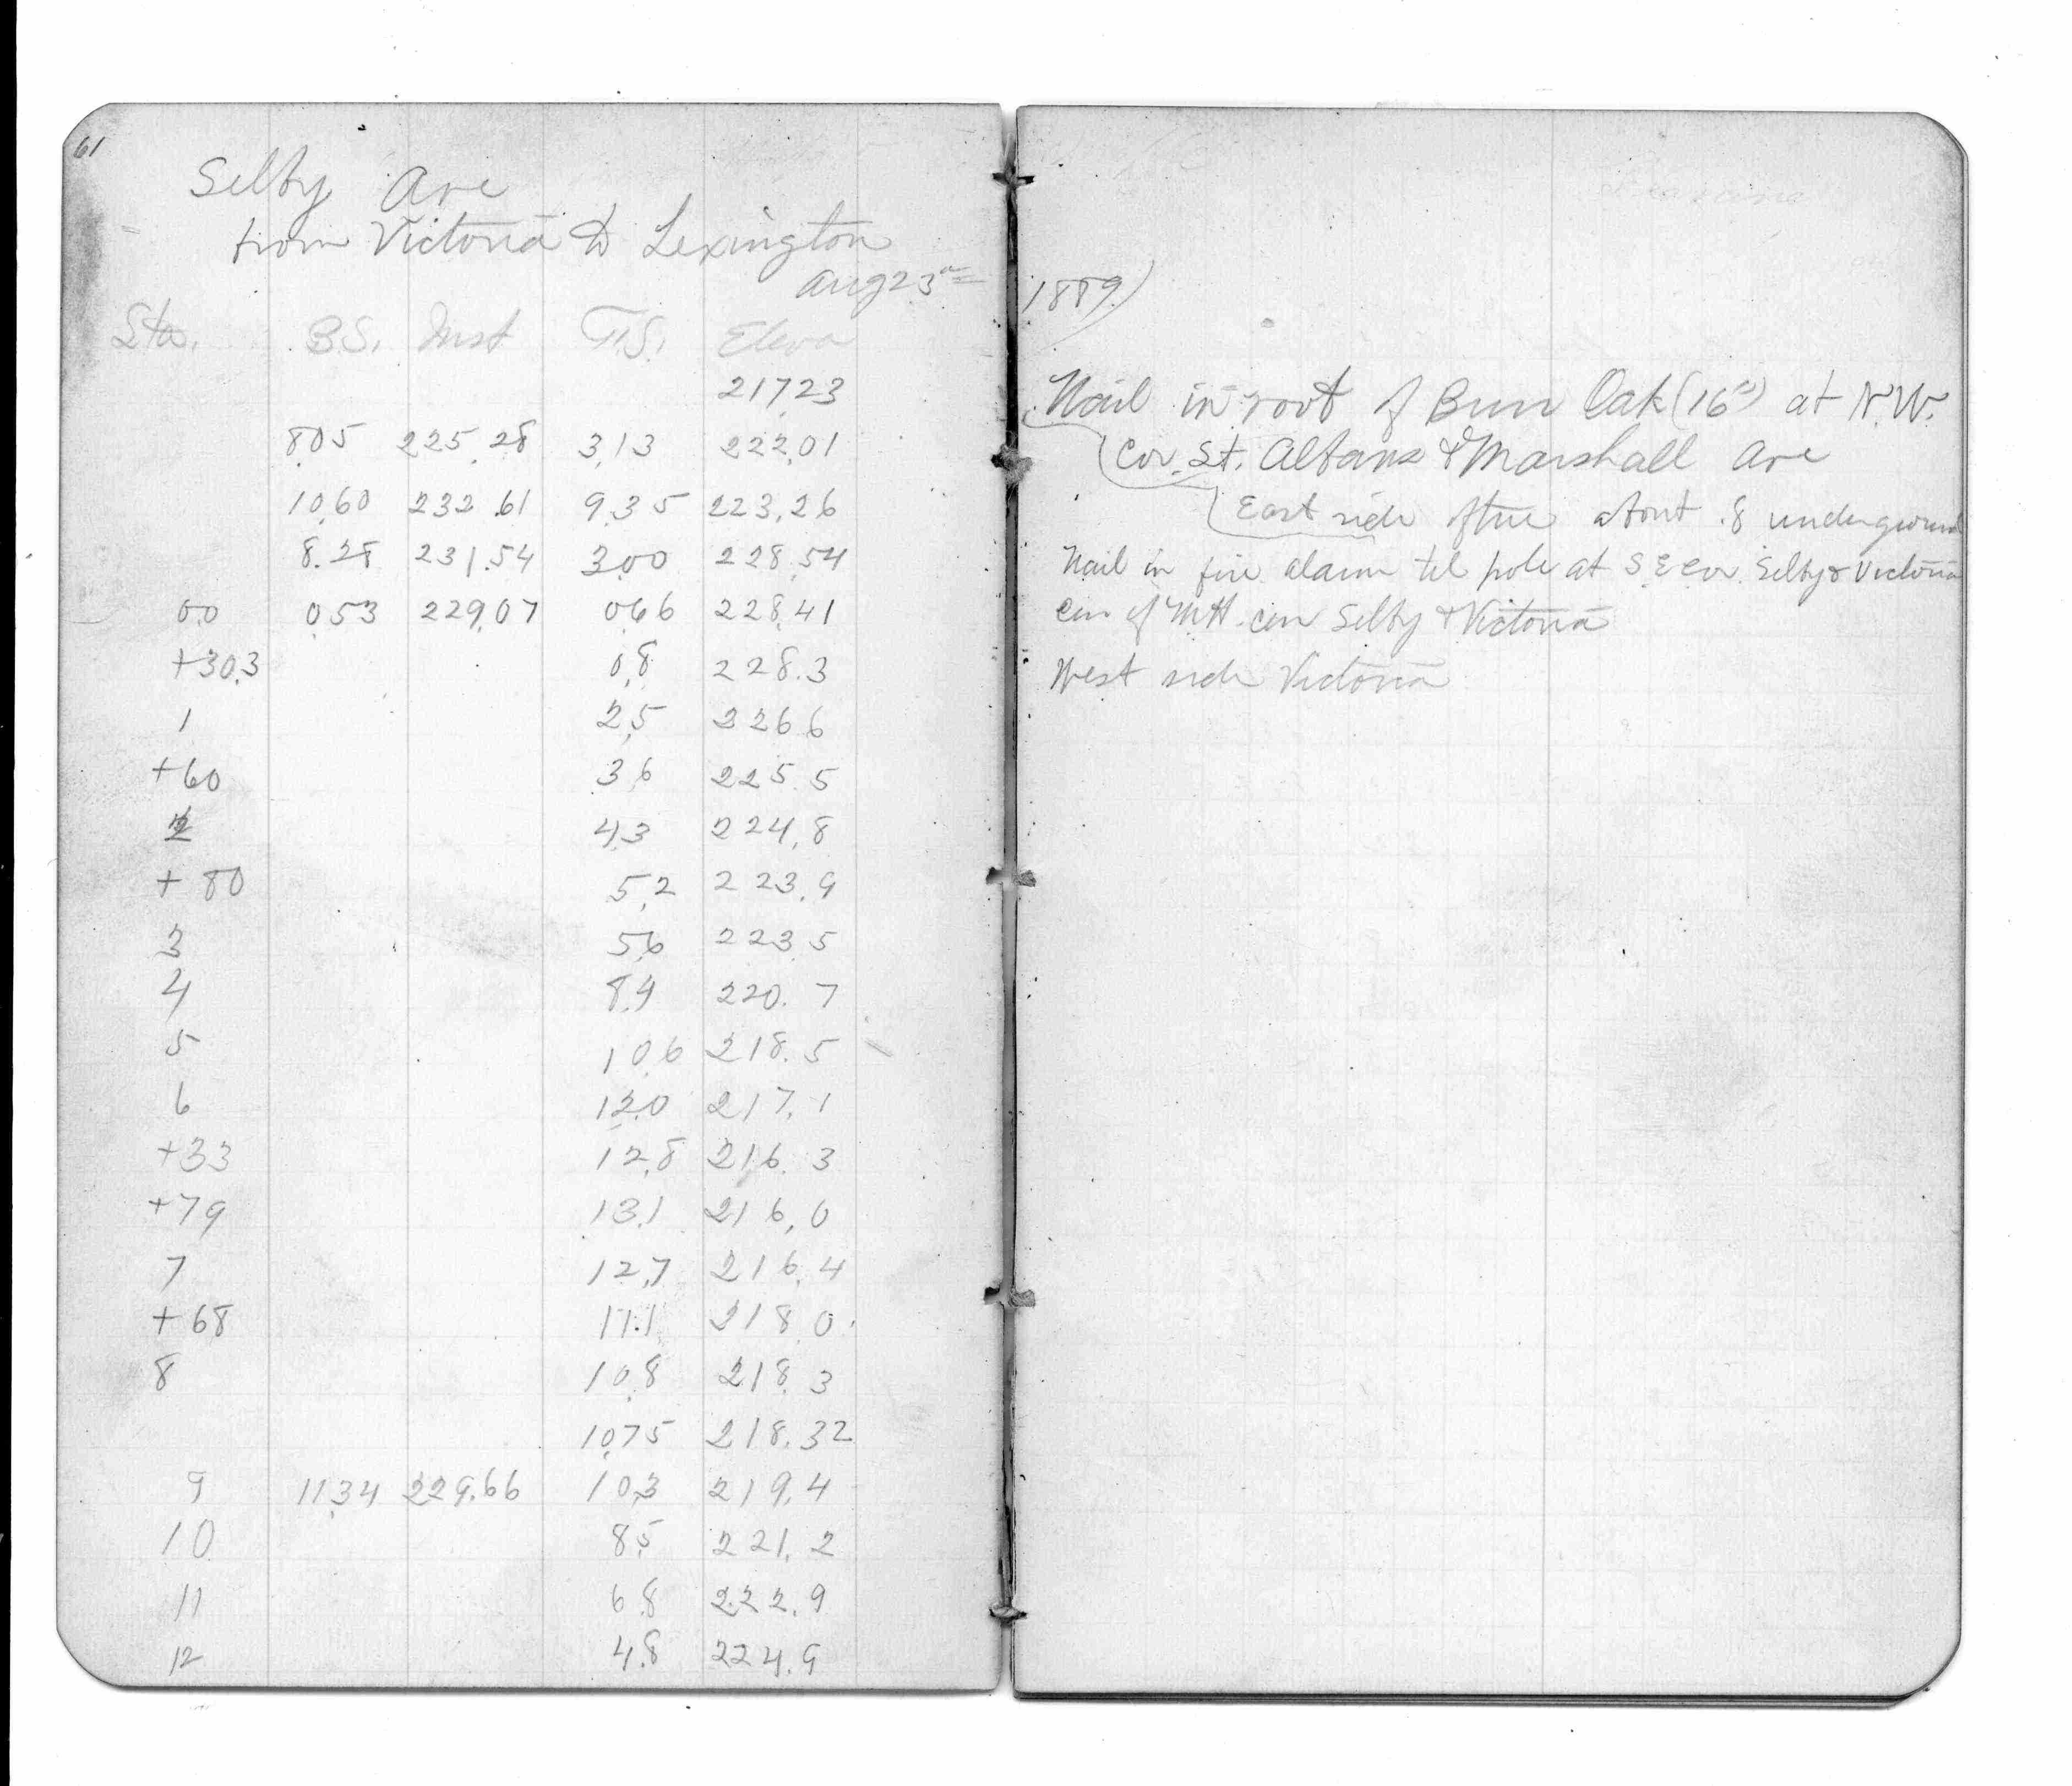 61
Selby Ave
from Victoria to Lexington
Aug 23rd 1889)
Sta. B.S. Inst F.S. Eleva
217.23 Nail in root of Burr Oak (16") at N.W.
8.05 225.28 3.13 222.01 Cor. St. Albans & Marshall Ave
10.60 232.61 9.35 223.26 East side of tree about .8 underground
8.28 231.54 3.00 228.54 Nail in fire alarm tel pole at S E Cor. Selby & Victoria
0.0 0.53 229.07 0.66 228.41 Cen of M H. cen Selby & Victoria
+30.3 0.8 228.3 West side Victoria
1 2.5 226.6
+60 3.6 225.5
2 4.3 224.8
+80 5.2 223.9
3 5.6 223.5
4 8.4 220.7
5 10.6 218.5
6 12.0 217.1
+33 12.8 216.3
+79 13.1 216.0
7 12.7 216.4
+68 11.1 218.0
8 10.8 218.3
10.75 218.32
9 11.34 229.66 10.3 219.4
10 8.5 221.2
11 6.8 222.9
12 4.8 224.9